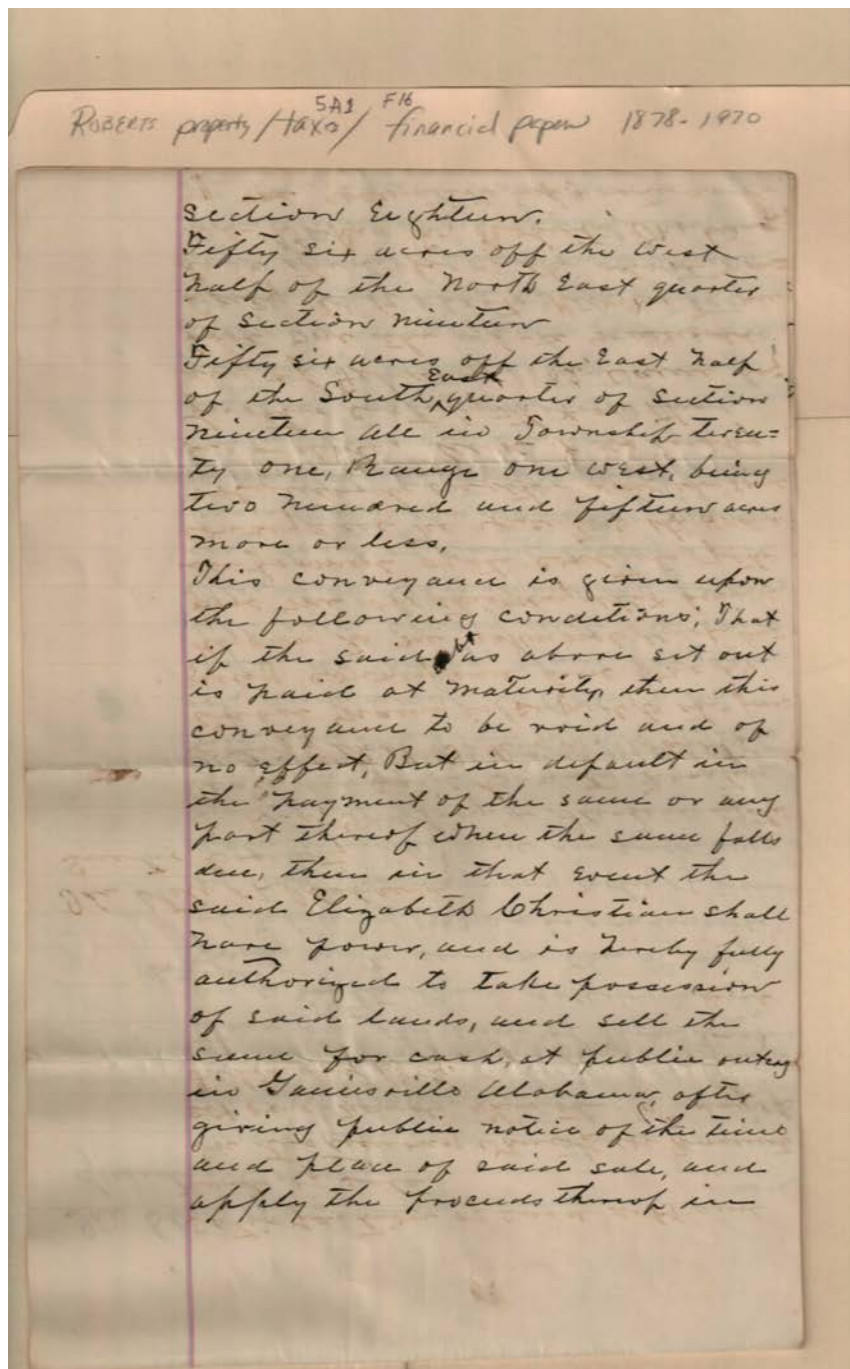 5A1 F16
ROBERTS property/taxes/ financial papers 1878-1970
section Eighteen.
Fifty six acres off the West
half of the North East quarter
of section nineteen
Fifty six acres off the East half
of the South East quarter of section
nineteen all in Township twen=
ty one, Range one west, being
two hundred and fifteen acres
more or less.
This conveyance is given upon
the following conditions; That
if the said debt as above set out
is paid at maturity, then this
conveyance to be void and of
no effect, But in default in
the payment of the same or any
part thereof when the same falls
due, then in that event the
said Elizabeth Christian shall
have power, and is hereby fully
authorized to take possession
of said lands, and sell the
same for cash, at public outcry
in Gainesville Alabama, after
giving public notice of the time
and place of said sale, and
apply the proceeds thereof in